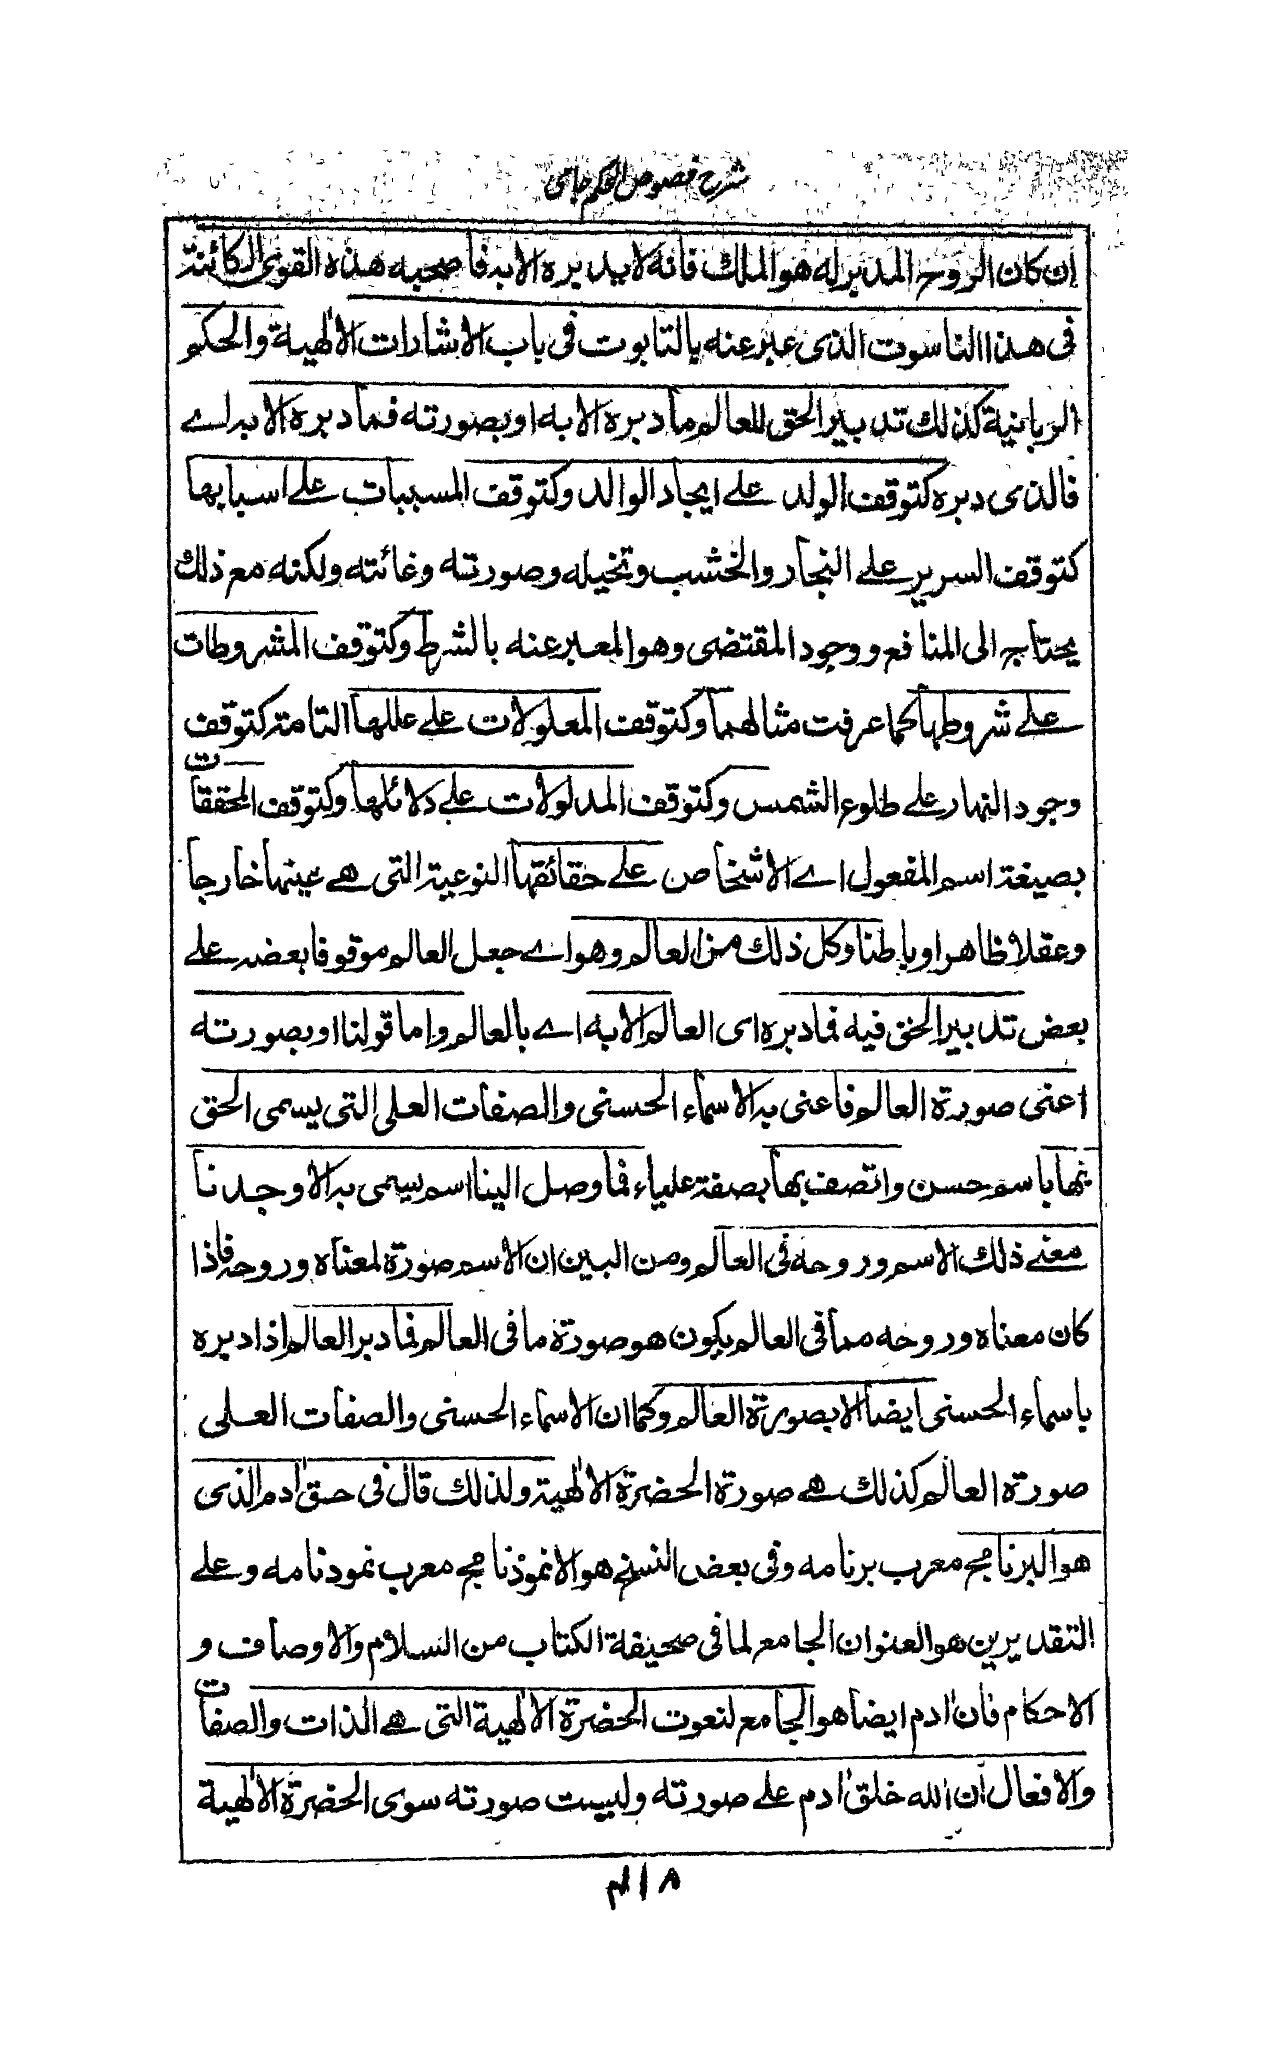 شرح فصوص الحكم جامى
ان كان الروح المدبر له هو الملك فانه لا يدبره الا به فاصحبه هذه القوى الكائنة
فى هذا الناسوت الذى عبر عنه بالتابوت فى باب الاشارات الالٰهية والحكم
الربانية كذلك تدبير الحق للعالم ما دبره الا به او بصورته فما دبره الا به اے
فالذى دبره كتوقف الولد علے ايجاد الوالد وكتوقف المسببات علے اسبابها
كتوقف السرير علے النجار والخشب وتخيله وصورته وغائته ولكنه مع ذلك
يحتاج الى المنافع ووجود المقتضى وهو المعبر عنه بالشرط وكتوقف المشروطات
علے شروطها كما عرفت مثالهما وكتوقف المعلولات علے عللها التامة كتوقف
وجود النهار علے طلوع الشمس وكتوقف المدلولات علے دلائلها وكتوقف المحققات
بصيغة اسم المفعول اے الاشخاص علے حقائقها النوعية التى هے عينها خارجا
وعقلا ظاهرا وباطنا وكل ذلك من العالم وهو اے جعل العالم موقوفا بعضه علے
بعض تدبير الحق فيه فما دبره اى العالم الا به اے بالعالم واما قولنا او بصورته
اعنى صورة العالم فاعنى به الاسماء الحسنى والصفات العلى التى يسمى الحق
بها باسم حسن واتصف بها بصفة علياء فما وصل الينا اسم يسمى به الا وجدنا
معنے ذلك الاسم وروحه فى العالم ومن البين ان الاسم صورة لمعناه وروحه فاذا
كان معناه وروحه مما فى العالم يكون هو صورة ما فى العالم فما دبر العالم اذا دبره
باسماء الحسنى ايضا الا بصورة العالم وكما ان الاسماء الحسنى والصفات العلى
صورة العالم كذلك هے صورة الحضرة الالٰهية ولذلك قال فى حق اٰدم الذى
هو البرنامج معرب برنامه وفى بعض النسخ هو الانموذنامج معرب نمودنامه وعلے
التقديرين هو العنوان الجامع لما فى صحيفة الكتاب من السلام والاوصاف و
الاحكام فان اٰدم ايضا هو الجامع لنعوت الحضرة الالٰهية التى هے الذات والصفات
والافعال ان الله خلق اٰدم علے صورته وليست صورته سوى الحضرة الالٰهية